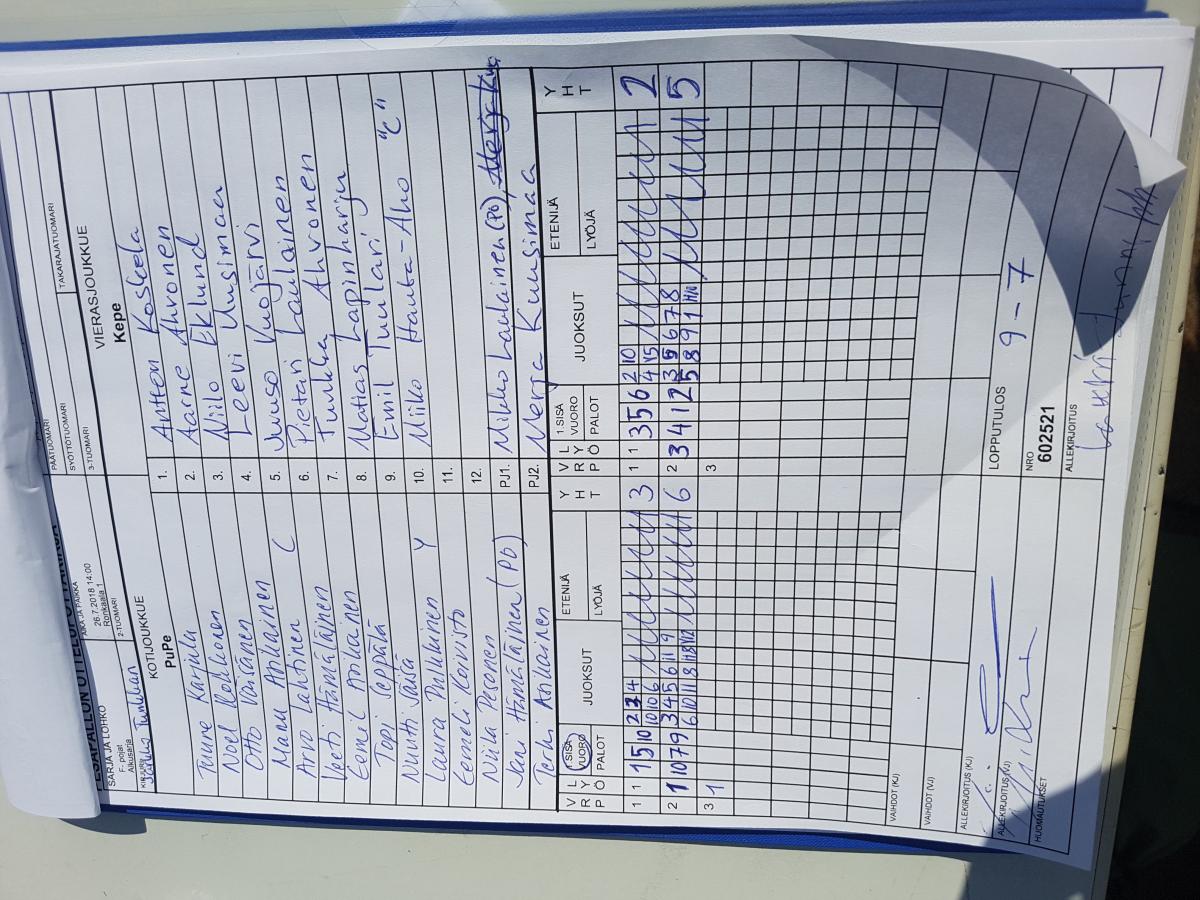 PESÄPALLON OTTELUPÖYTÄKIRJA
SARJA JA LOHKO
F- pojat
Alkusarja
AIKA JA PAIKKA
26.7.2018 14:00
Ronkaala 1
PÄÄTUOMARI
TAKARAJATUOMARI
KIRJURI
2-TUOMARI
SYÖTTÖTUOMARI
3-TUOMARI
KOTIJOUKKUE
PuPe
VIERASJOUKKUE
Kepe
Tuure Karjula
1. Antton Koskela
Noel Kokkonen
2. Aarne Ahvonen
Otto Väisänen
3. Niilo Eklund
Manu Asikainen C
4. Leevi Uusimaa
Arvo Lahtinen
5. Juuso Vuojärvi
Veeti Hämäläinen
6. Pietari Laulainen
Eemil Asikainen
7. Tuukka Ahvonen
Topi Seppälä
8. Matias Lapinharju
Nuutti Jäisä
9. Emil Tuulari
Laura Pulkkinen Y
10. Miiko Hauta-Aho "C"
Eemeli Koivisto
11.
Niila Pesonen
12.
Jani Hämäläinen (PD)
PJ1. Mikko Laulainen (PD),
Peki Asikainen
PJ2. Merja Kuusimaa
V R P L Y Ö
1.SISÄ
VUORO
PALOT
JUOKSUT
ETENIJÄ
LYÖJÄ
Y H T
V R P L Y Ö
1.SISÄ
VUORO
PALOT
JUOKSUT
ETENIJÄ
LYÖJÄ
Y H T
1 1 1 5 10 2 3 4 3
10 10 6
1 1 3 5 6 2 10 2
4 15
2 1 10 7 9 3 4 5 6 11 9 6
6 10 11 8
2 3 4 1 2 3 5 6 7 8 5
5 8 9 1 H10
3 1
3
VAIHDOT (KJ)
VAIHDOT (VJ)
ALLEKIRJOITUS (KJ)
ALLEKIRJOITUS (VJ)
HUOMAUTUKSET
LOPPUTULOS
9 - 7
NRO
602521
ALLEKIRJOITUS